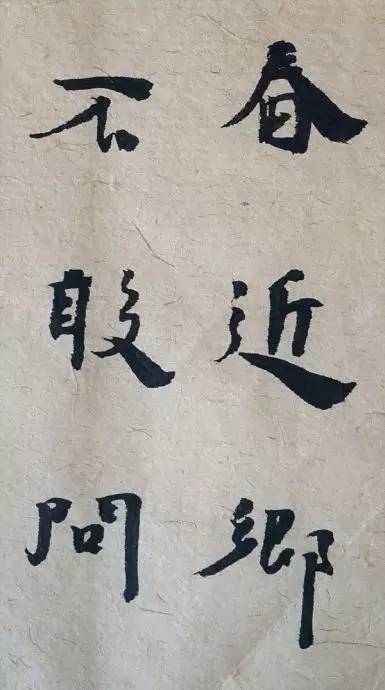 春近鄉
不敢問